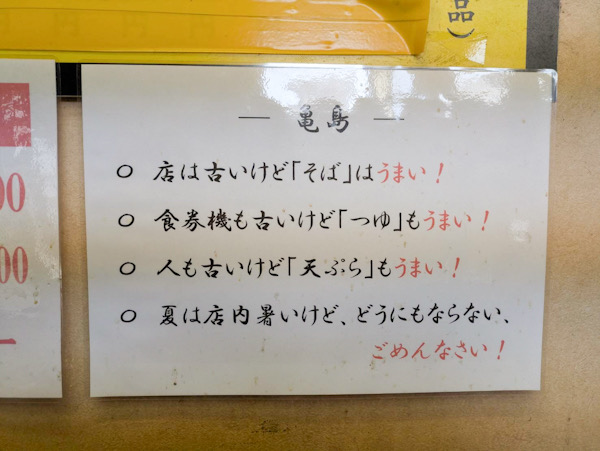 品）
― 亀島 ―
○ 店は古いけど「そば」はうまい！
○ 食券機も古いけど「つゆ」もうまい！
○ 人も古いけど「天ぷら」もうまい！
○ 夏は店内暑いけど、どうにもならない、
ごめんなさい！
00
00